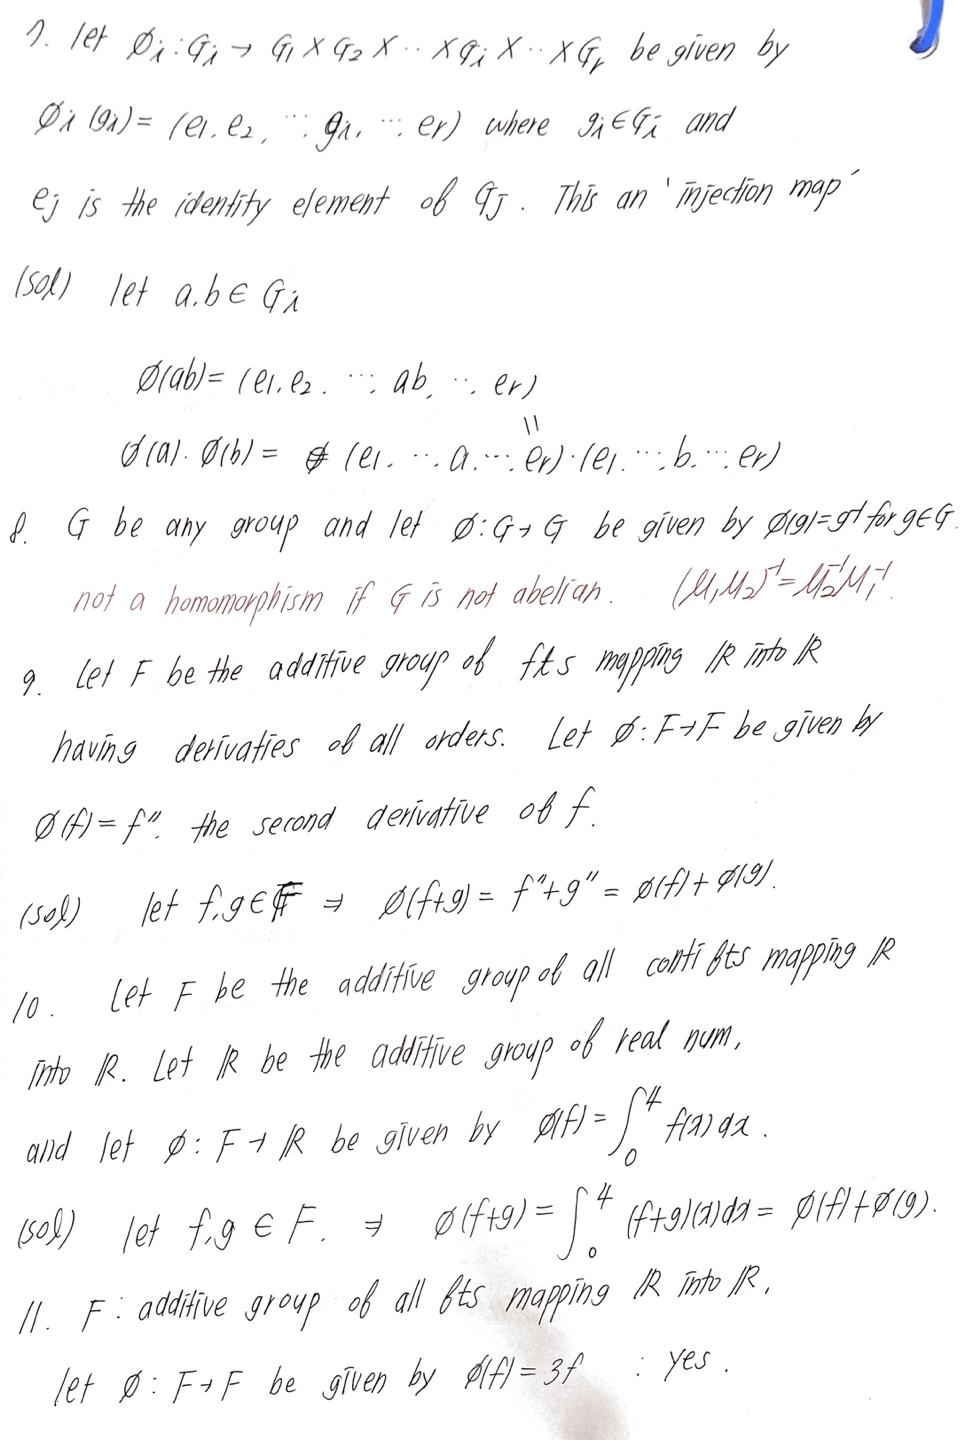 7. let Øi : Gi → G1 X G2 X ·· X Gi X ·· X Gr be given by
Øi (gi) = (e1, e2, ··· gi, ··· er) where gi ∈ Gi and
ej is the identity element of Gj. This an 'injection map'
(sol) let a.b ∈ Gi
Ø(ab) = (e1, e2. ···, ab, ··, er)
=
Ø(a). Ø(b) = (e1. ···, a. ···. er)·(e1. ···, b. ··· er)
8. G be any group and let Ø: G → G be given by Ø(g)=g⁻¹ for g∈G.
not a homomorphism if G is not abelian. (M1M2)⁻¹ = M2⁻¹M1⁻¹.
9. Let F be the additive group of fts mapping ℝ into ℝ
having derivaties of all orders. Let Ø: F→F be given by
Ø(f) = f''. the second derivative of f.
(sol) let f,g ∈ F ⇒ Ø(f+g) = f''+g'' = Ø(f) + Ø(g).
10. Let F be the additive group of all conti fts mapping ℝ
into ℝ. Let ℝ be the additive group of real num,
and let Ø: F → ℝ be given by Ø(f) = ∫₀⁴ f(x) dx.
(sol) let f,g ∈ F. ⇒ Ø(f+g) = ∫₀⁴ (f+g)(x)dx = Ø(f)+Ø(g).
11. F : additive group of all fts mapping ℝ into ℝ,
let Ø : F→F be given by Ø(f) = 3f : yes.